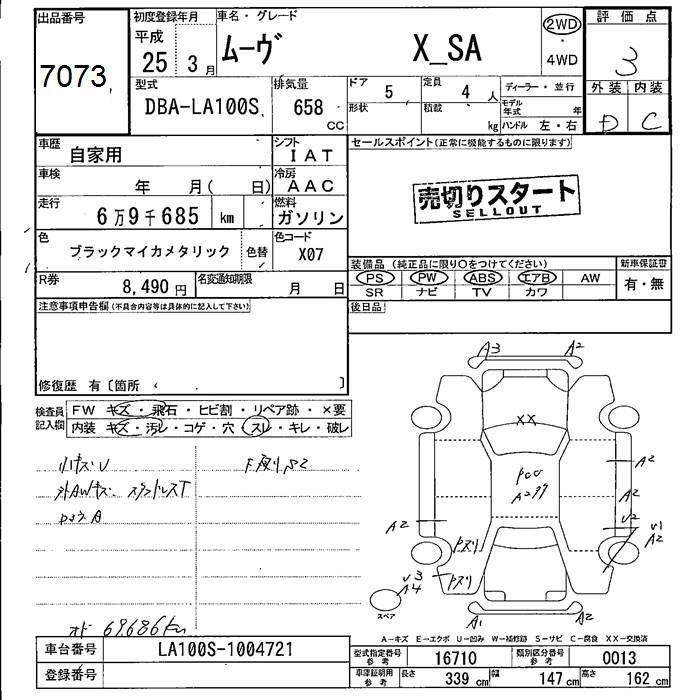 出品番号
7073
初度登録年月
平成
25 3月
車名・グレード
ムーヴ X_SA
2WD
・
4WD
評価点
3
外装 内装
D C
型式
DBA-LA100S
排気量
658
cc
ドア 5
形状
定員 4 人
積載 kg
ディーラー・並行
モデル年式 年
ハンドル 左・右
車歴
自家用
シフト
IAT
車検
年 月( 日)
冷房
AAC
走行
6万9千685 km
燃料
ガソリン
色
ブラックマイカメタリック
色替
色コード
X07
R券
8,490 円
名変通知期限
月 日
セールスポイント(正常に機能するものに限ります)
売切りスタート
SELLOUT
装備品 (純正品に限り○をつけてください)
PS PW ABS エアB AW
SR ナビ TV カワ
新車保証書
有・無
後日品
注意事項申告欄(不具合内容等は具体的に記入して下さい)
修復歴 有〔箇所 〕
検査員
記入欄
FW キズ・飛石・ヒビ割・リペア跡・×要
内装 キズ・汚レ・コゲ・穴・スレ・キレ・破レ
小キズU
外AWキズ スタッドレスT
オド 69686km
A3
A2
XX
A2
A2
U2
U1
A2
A2
U3
A4
スペア
A1
A2
A-キズ E-エクボ U-凹み W-補修跡 S-サビ C-腐食 XX-交換済
車台番号
LA100S-1004721
登録番号
型式指定番号
参考
16710
類別区分番号
参考
0013
車庫証明用
参考
長さ 339 cm
幅 147 cm
高さ 162 cm